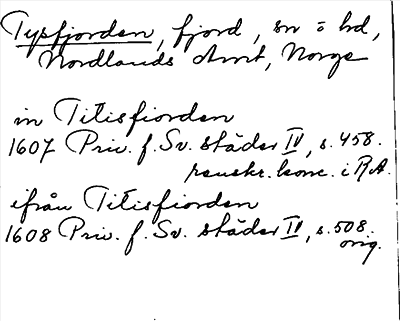 Tysfjorden, fjord, sn o hd,
Nordlands Amt, Norge
in Titisfiorden
1607 Priv. f. Sv. städer IV, s. 458.
renskr. konc. i RA.
ifrån Titisfiorden
1608 Priv. f. Sv. städer IV, s. 508.
orig.